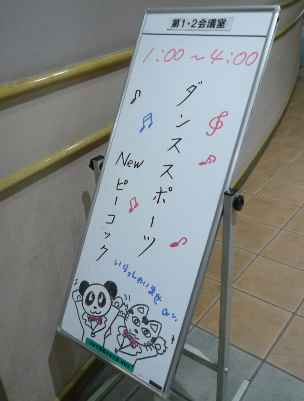 第1・2会議室
1:00～4:00
ダンススポーツ
New ピーコック
いらっしゃいませ